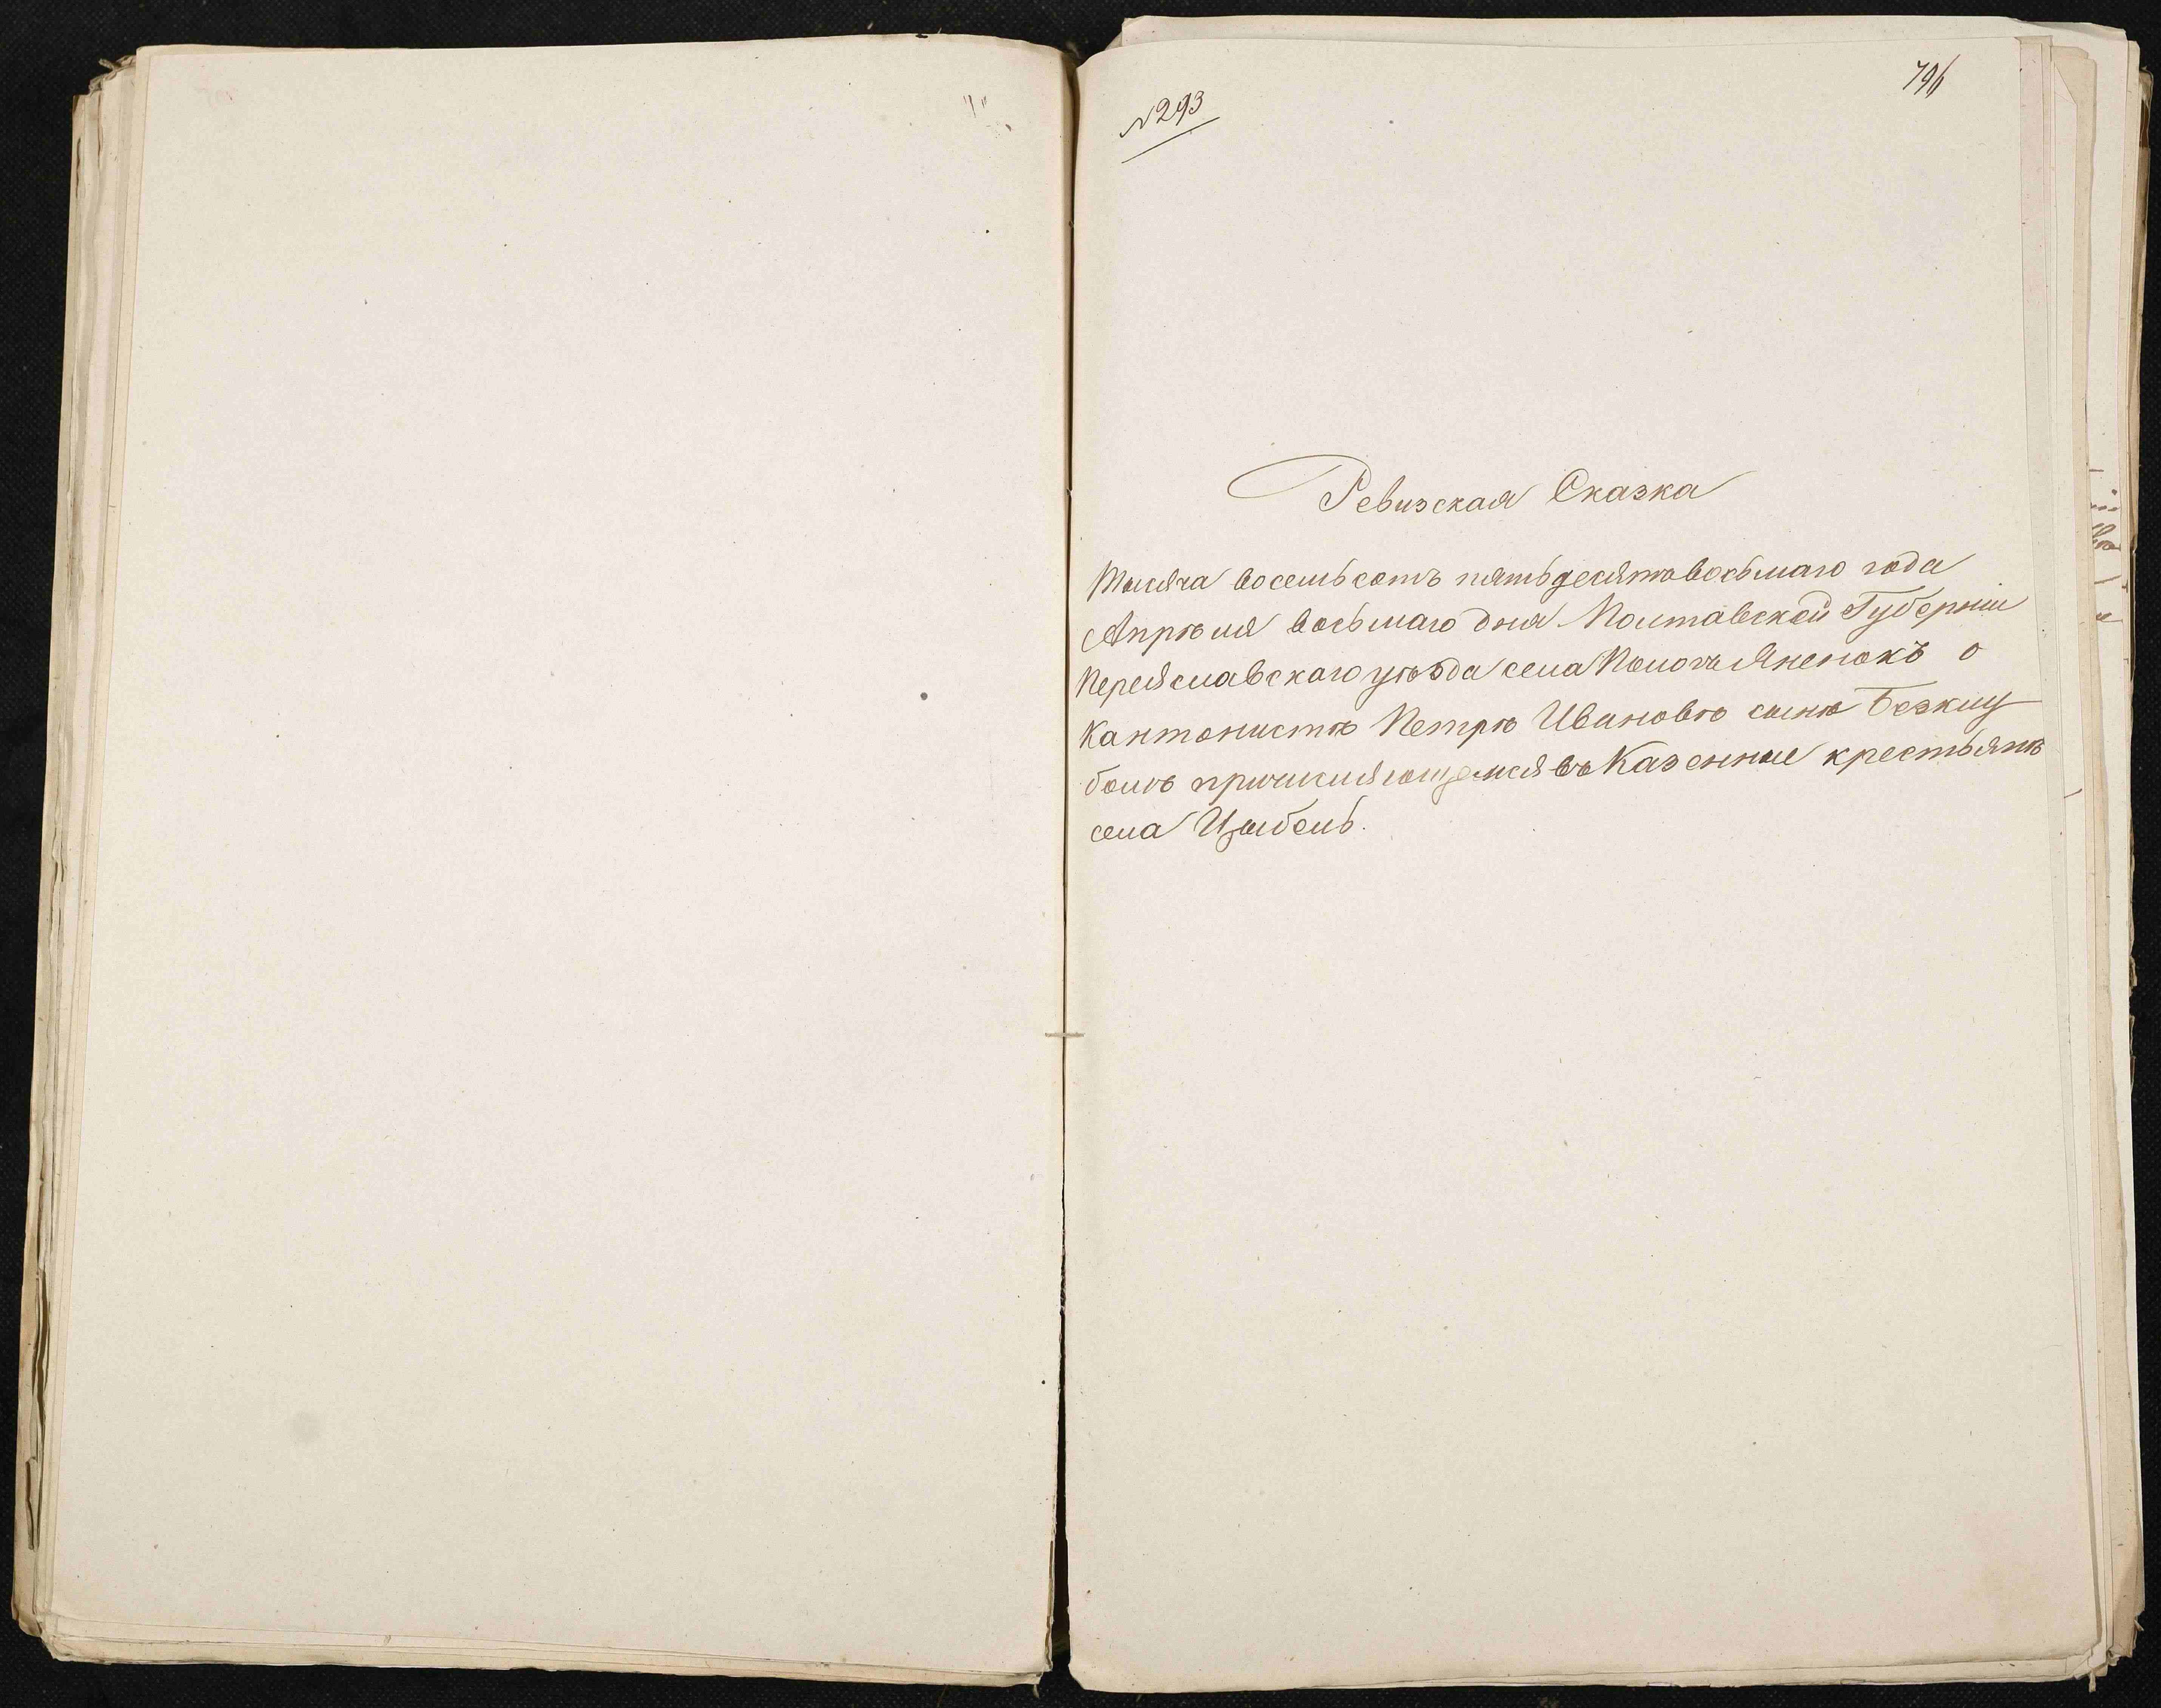 796
№ 293
Ревизская Сказка
Тысяча восемьсотъ пятьдесятъ восьмаго года
Апрѣля восьмаго дня Полтавской Губерніи
Переяславскаго уѣзда села Помоклъ о
Кантонистѣ Петрѣ Ивановѣ сынѣ
причисляющемся въ Казенные крестьянѣ
села Цыбель.